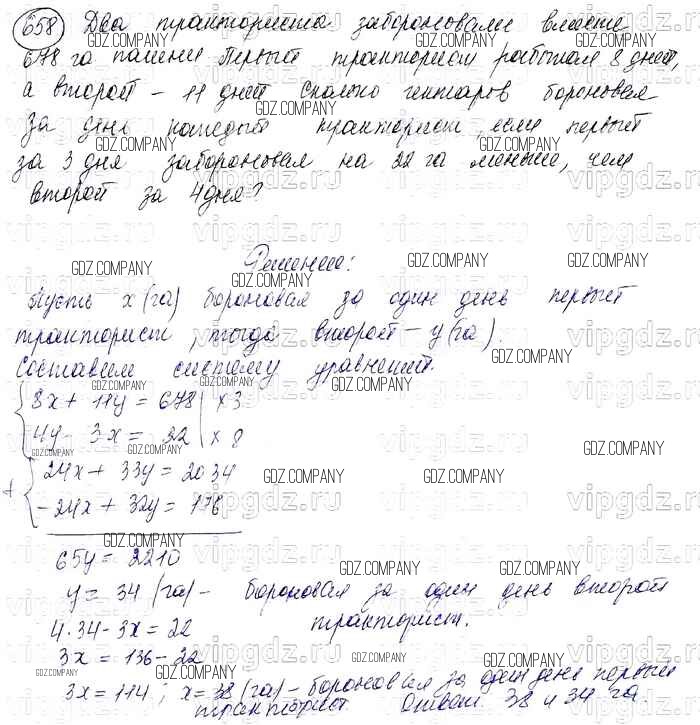 658 Два тракториста забороновали вместе
678 га пашни Первый тракторист работал 8 дней,
а второй - 11 дней Сколько гектаров бороновал
за день каждый тракторист, если первый
за 3 дня забороновал на 22 га меньше, чем
второй за 4 дня?
Решение:
Пусть x (га) бороновал за один день первый
тракторист, тогда второй - y (га).
Составим систему уравнений.
8x + 11y = 678 | x 3
4y - 3x = 22 | x 8
+ 24x + 33y = 2034
-24x + 32y = 176
65y = 2210
y = 34 (га) - бороновал за один день второй
тракторист.
4·34-3x = 22
3x = 136-22
3x = 114 ; x = 38 (га) - бороновал за один день первый
тракторист Ответ: 38 и 34 га
GDZ.COMPANY
vipgdz.ru